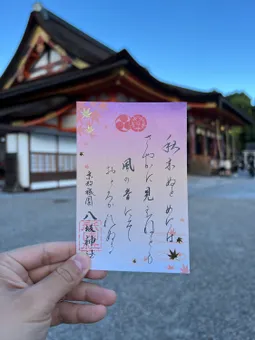 秋来ぬとめには
さやかに見えねども
風の音にぞ
おどろかれぬる
京都祇園 八坂神社